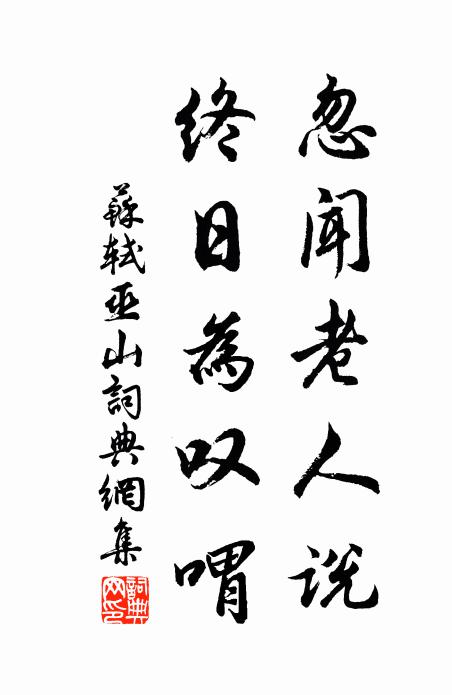 忽闻老人说
终日為叹喟
蘇軾巫山詞典網集
詞典网印